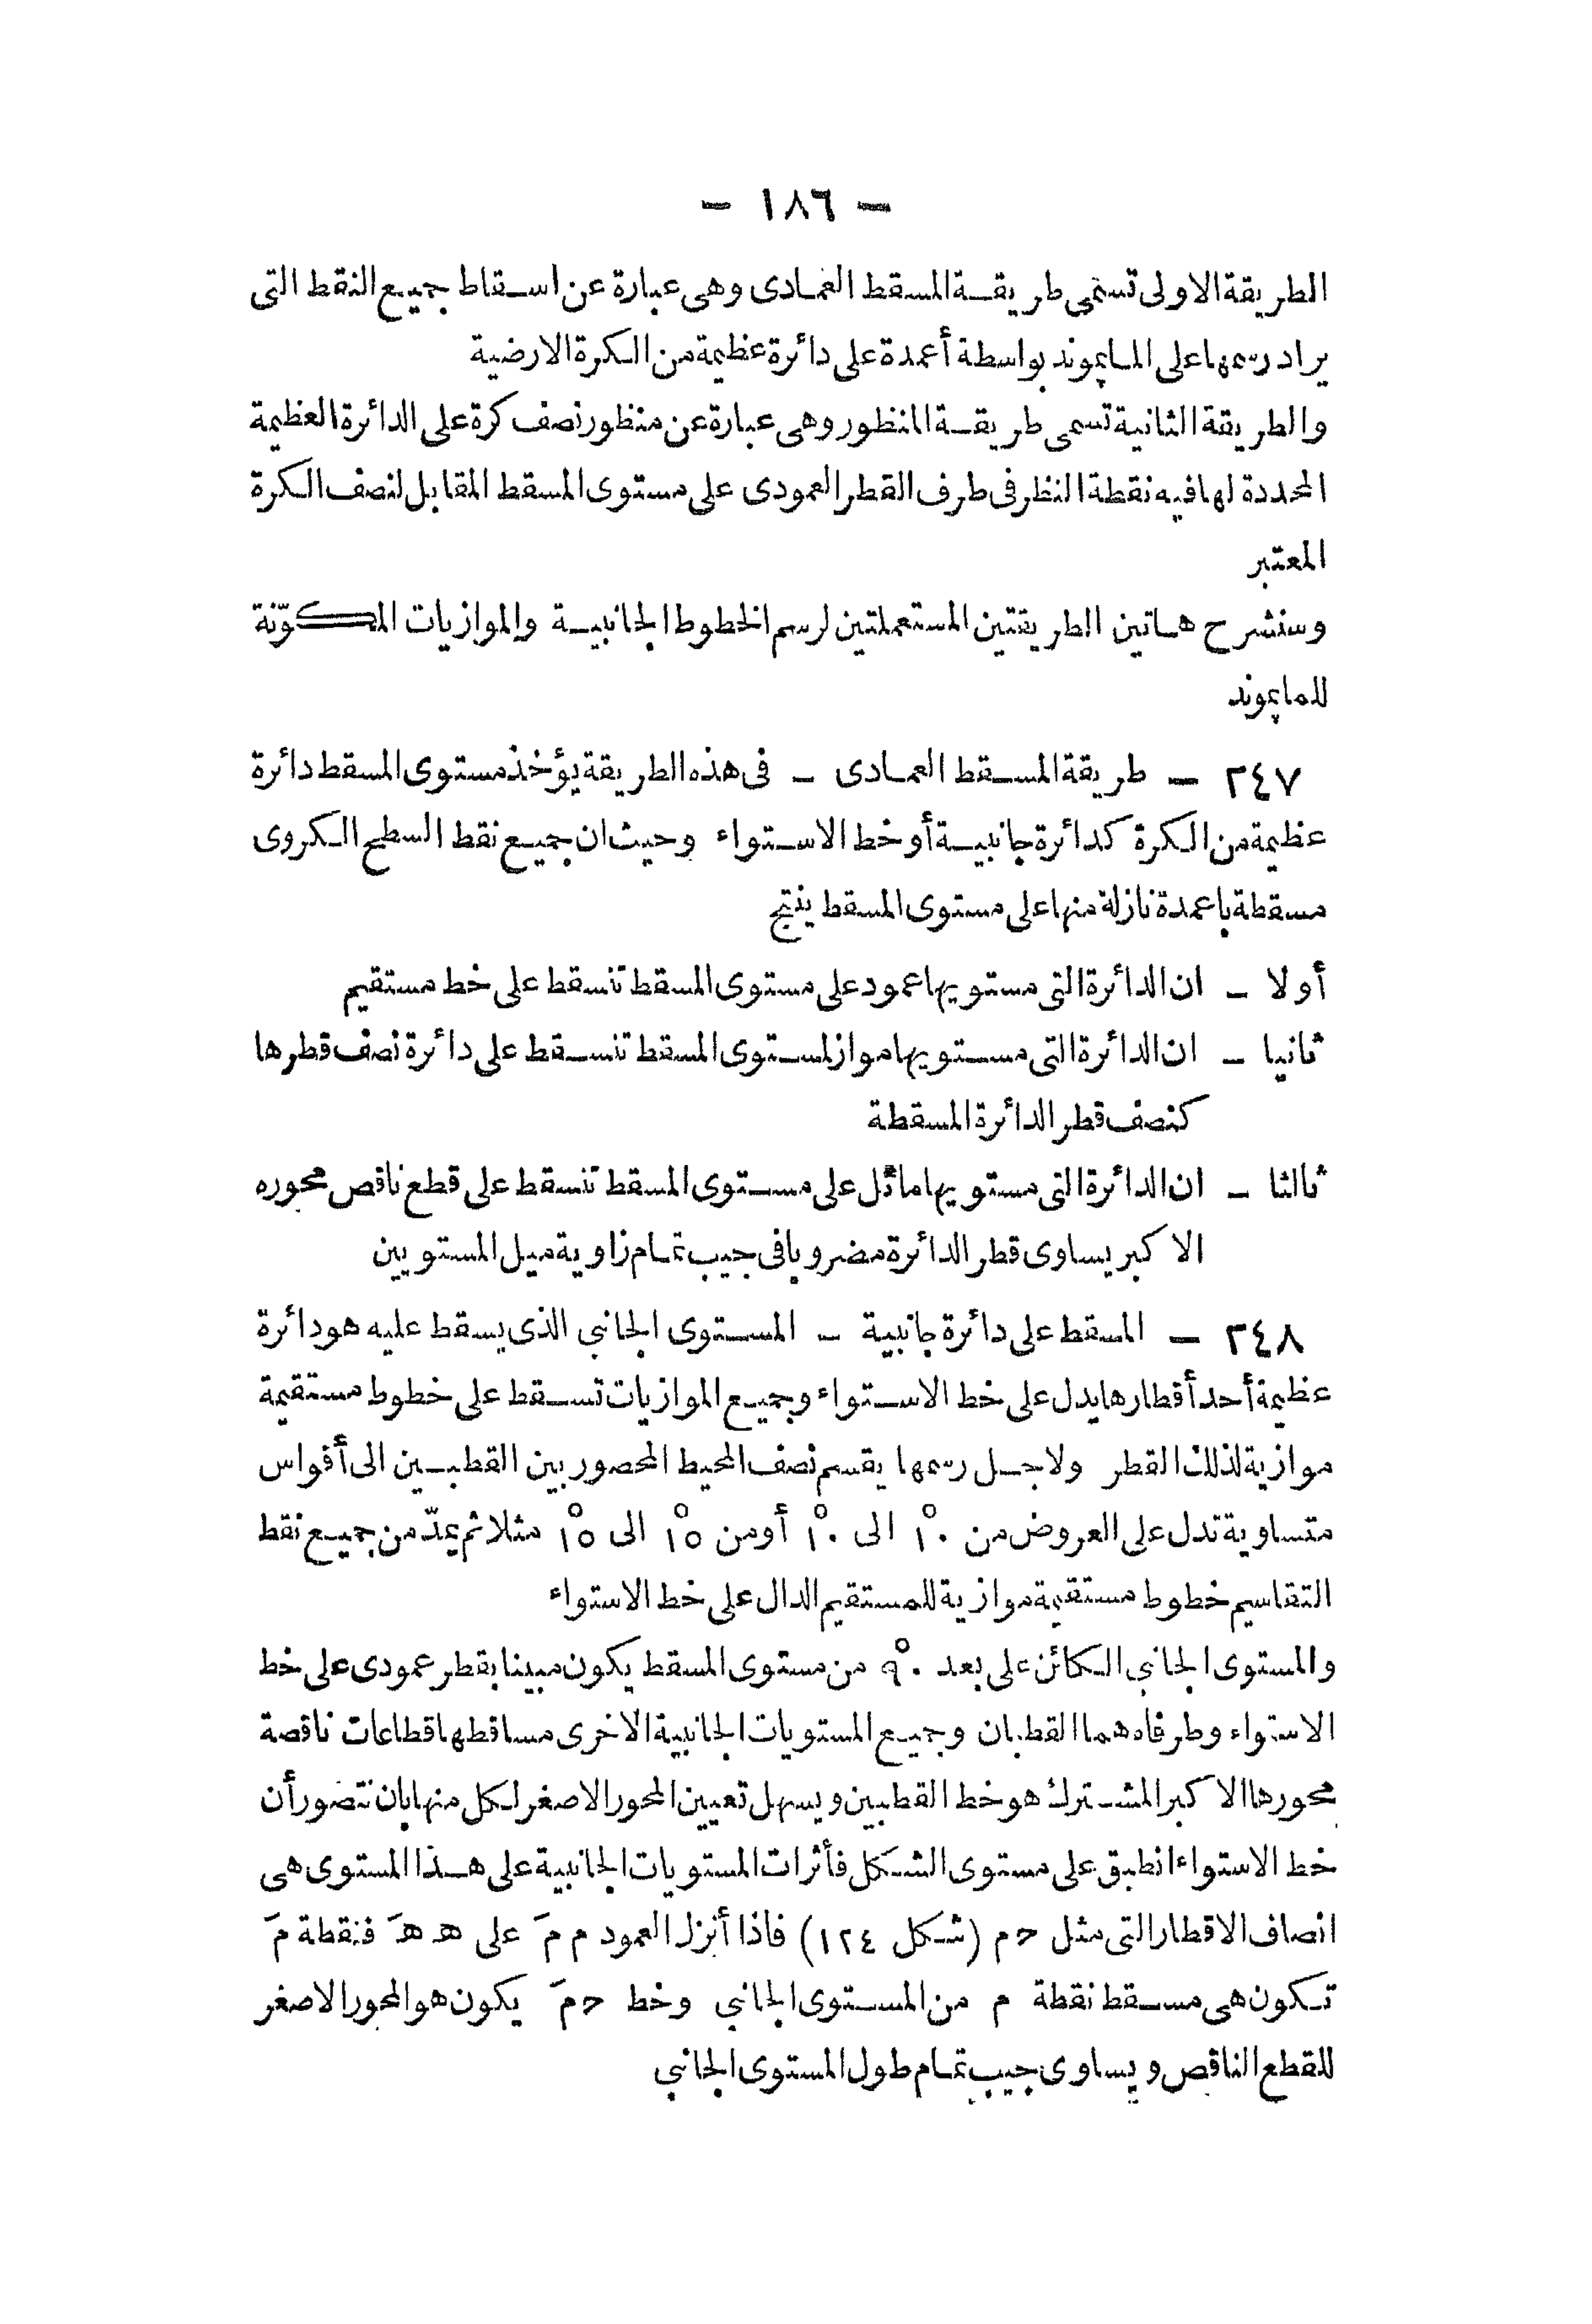 — ١٨٦ —
الطريقة الاولى تسمى طريقة المسقط العمادى وهى عبارة عن اسقاط جميع النقط التى
يراد رسمها على المايموند بواسطة أعمدة على دائرة عظيمة من الكرة الارضية
والطريقة الثانية تسمى طريقة المنظور وهى عبارة عن منظور نصف كرة على الدائرة العظيمة
المحددة لها فيه نقطة النظر فى طرف القطر العمودى على مستوى المسقط المقابل لنصف الكرة
المعتبر
وسنشرح هاتين الطريقتين المستعملتين لرسم الخطوط الجانبية والموازيات المكوّنة
للمايموند
٢٤٧ — طريقة المسقط العمادى — فى هذه الطريقة يؤخذ مستوى المسقط دائرة
عظيمة من الكرة كدائرة جانبية أو خط الاستواء وحيث ان جميع نقط السطح الكروى
مسقطة باعمدة نازلة منها على مستوى المسقط ينتج
أولا — ان الدائرة التى مستويها عمود على مستوى المسقط تنسقط على خط مستقيم
ثانيا — ان الدائرة التى مستويها مواز لمستوى المسقط تنسقط على دائرة نصف قطرها
كنصف قطر الدائرة المسقطة
ثالثا — ان الدائرة التى مستويها مائل على مستوى المسقط تنسقط على قطع ناقص محوره
الاكبر يساوى قطر الدائرة مضروبا فى جيب تمام زاوية ميل المستويين
٢٤٨ — المسقط على دائرة جانبية — المستوى الجانبى الذى يسقط عليه هو دائرة
عظيمة أحد أقطارها يدل على خط الاستواء وجميع الموازيات تسقط على خطوط مستقيمة
موازية لذلك القطر ولاجل رسمها يقسم نصف المحيط المحصور بين القطبين الى أقواس
متساوية تدل على العروض من ١٠° الى ١٠° أو من ١٥° الى ١٥° مثلا ثم يمدّ من جميع نقط
التقاسيم خطوط مستقيمة موازية للمستقيم الدال على خط الاستواء
والمستوى الجانبى الكائن على بعد ٩٠° من مستوى المسقط يكون مبينا بقطر عمودى على خط
الاستواء وطرفاه هما القطبان وجميع المستويات الجانبية الاخرى مساقطها قطاعات ناقصة
محورها الاكبر المشترك هو خط القطبين ويسهل تعيين المحور الاصغر لكل منها بان نتصور أن
خط الاستواء انطبق على مستوى الشكل فأثرات المستويات الجانبية على هذا المستوى هى
انصاف الاقطار التى مثل حم (شكل ١٢٤) فاذا أنزل العمود م مَ على ه هَ فنقطة مَ
تكون هى مسقط نقطة م من المستوى الجانبى وخط حمَ يكون هو المحور الاصغر
للقطع الناقص ويساوى جيب تمام طول المستوى الجانبى